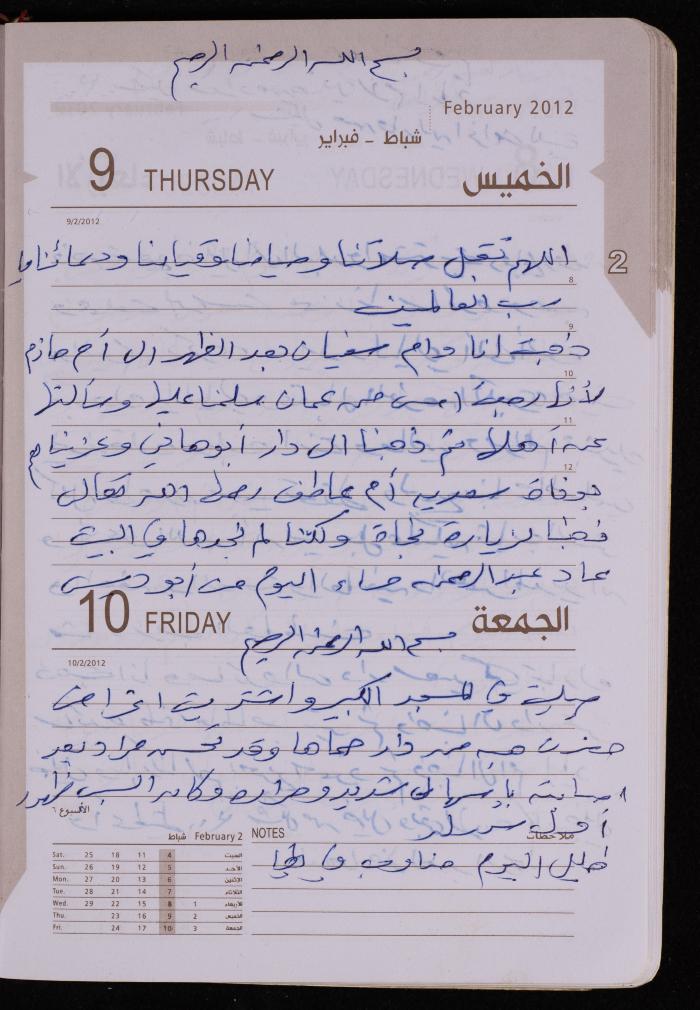 بسم الله الرحمن الرحيم
February 2012
شباط - فبراير
9 THURSDAY الخميس
9/2/2012
2
اللهم تقبل صلاتنا وصيامنا وقيامنا ودعائنا يا
8
رب العالمين
9
ذهبت انا وام سفيان بعد الظهر الى أم حازم
10
لأنها رجعت امس من عمان سلمنا عليها وسألتها
11
عن أهلها ثم ذهبنا الى دار أبو هاني وعزيناهم
12
بوفاة سعديه أم عاطف رحمها الله تعالى
قمنا لزيارة نجاة ولكننا لم نجدها في البيت
عاد عبد الرحمن مساء اليوم من أبو ديس
10 FRIDAY الجمعة
بسم الله الرحمن الرحيم
10/2/2012
صليت في المسجد الكبير واشتريت اغراض
حضرت من دار حماها وقد تحسن مراد بعد
اصابته باسهال شديد وحرارة وكان السبب ظهور
أول
الأسبوع ٦
شباط February 2
NOTES ملاحظات
طيلة اليوم
Sat. 25 18 11 4 السبت
Sun. 26 19 12 5 الأحد
Mon. 27 20 13 6 الإثنين
Tue. 28 21 14 7 الثلاثاء
Wed. 29 22 15 8 1 الأربعاء
Thu. 23 16 9 2 الخميس
Fri. 24 17 10 3 الجمعة